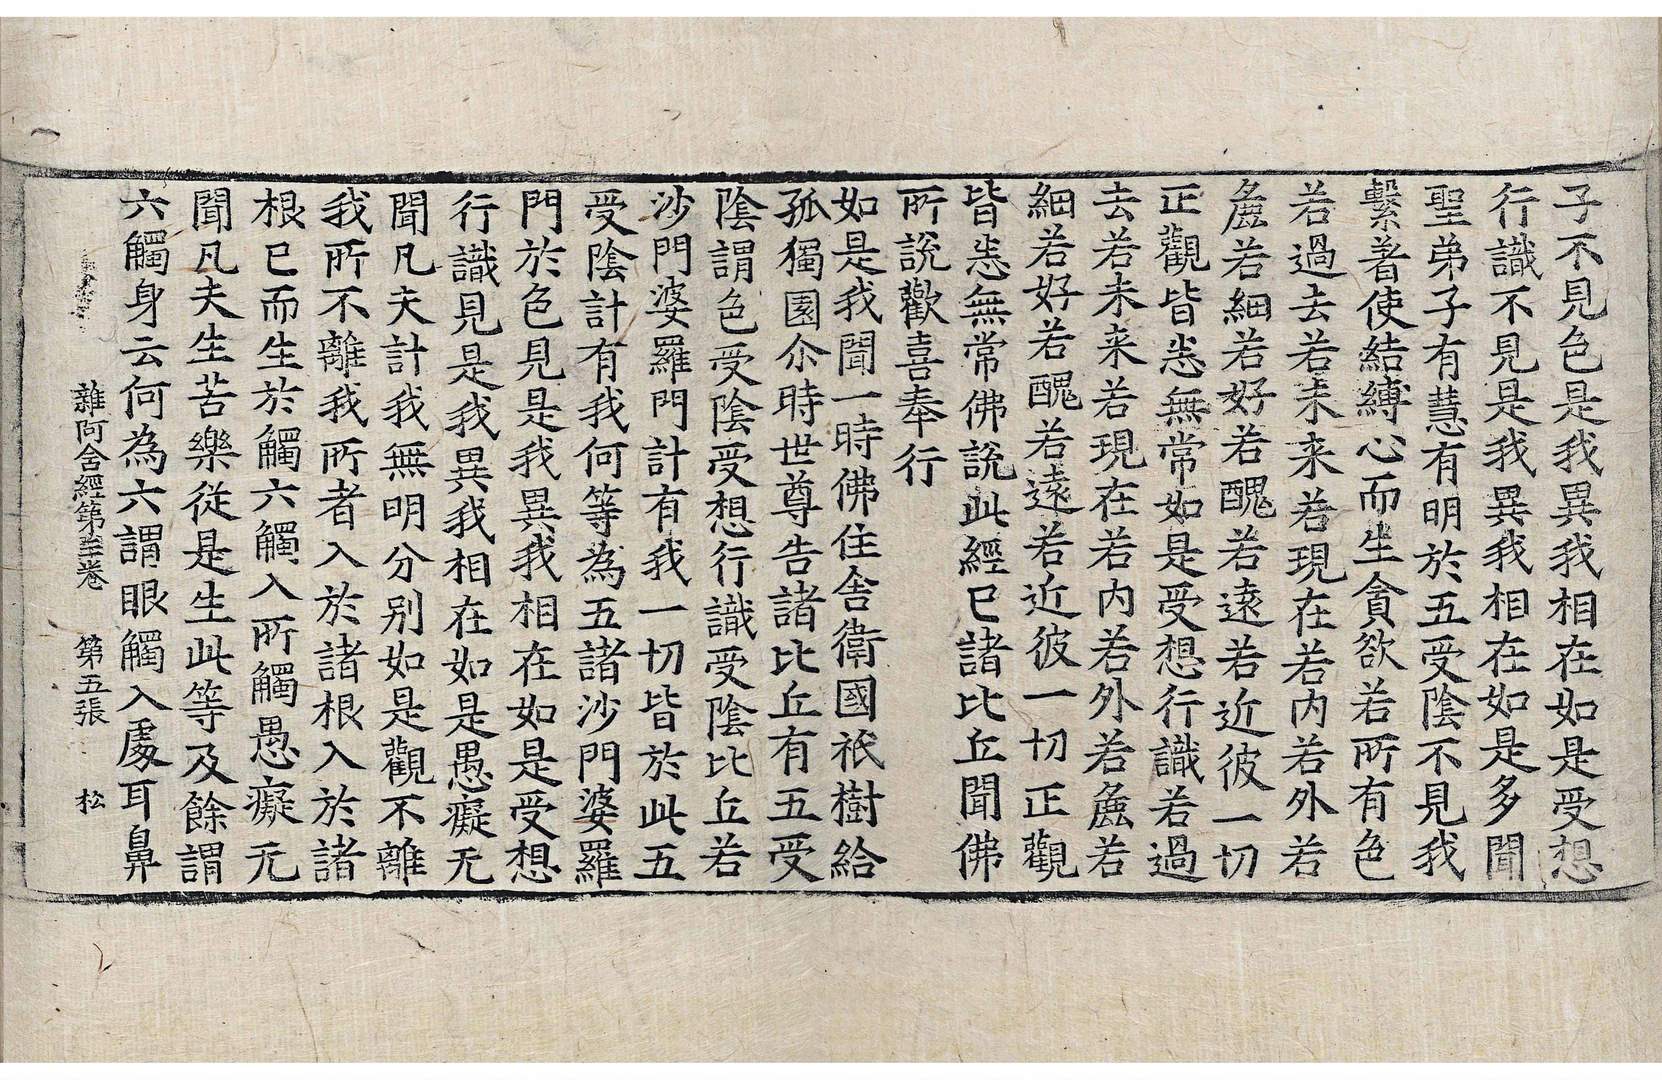 子不見色是我異我相在如是受想
行識不見是我異我相在如是多聞
聖弟子有慧有明於五受陰不見我
繫著使結縛心而生貪欲若所有色
若過去若未来若現在若内若外若
麁若細若好若醜若遠若近彼一切
正觀皆悉無常如是受想行識若過
去若未来若現在若内若外若麁若
細若好若醜若遠若近彼一切正觀
皆悉無常佛說此經已諸比丘聞佛
所說歡喜奉行
如是我聞一時佛住舍衛國祇樹給
孤獨園尒時世尊告諸比丘有五受
陰謂色受陰受想行識受陰比丘若
沙門婆羅門計有我一切皆於此五
受陰計有我何等為五諸沙門婆羅
門於色見是我異我相在如是受想
行識見是我異我相在如是愚癡无
聞凡夫計我無明分別如是觀不離
我所不離我所者入於諸根入於諸
根已而生於觸六觸入所觸愚癡无
聞凡夫生苦樂從是生此等及餘謂
六觸身云何為六謂眼觸入處耳鼻
雜阿含經第三卷 第五張 松